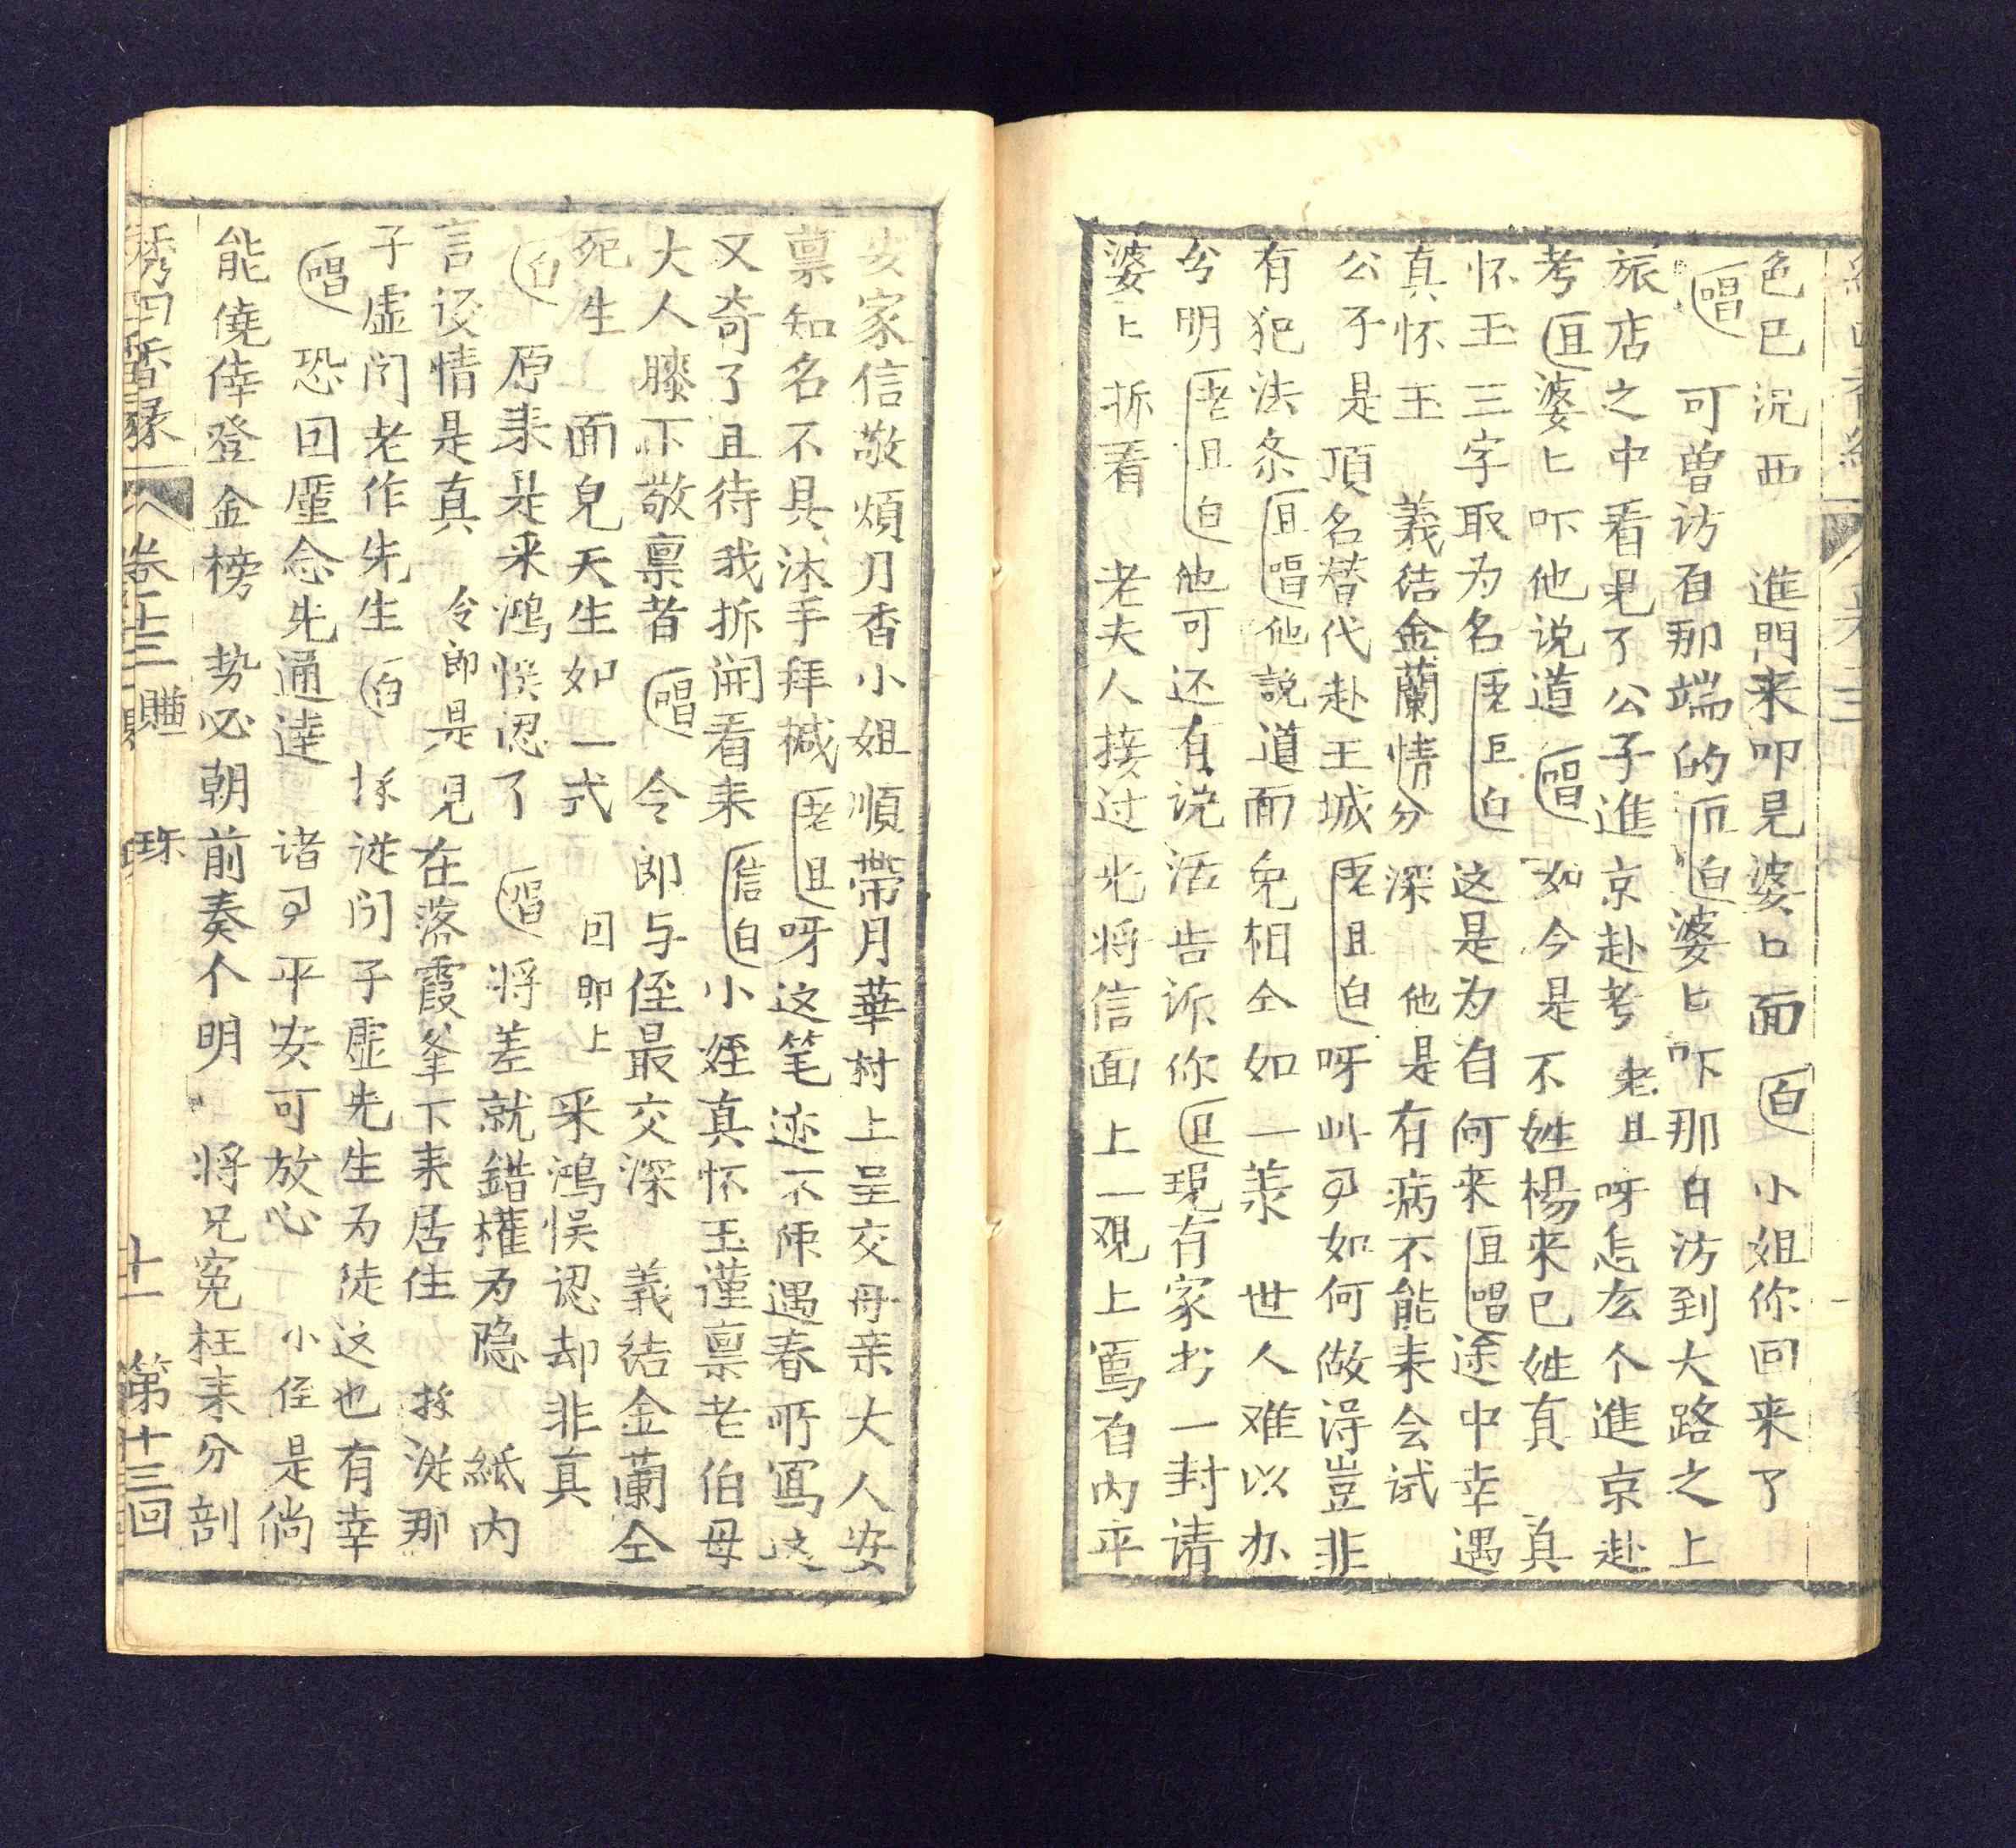 色已沉西　進門来叩見婆口面　白　小姐你回来了
唱　可曽访有那端的　旦白　婆匕吓那日访到大路之上
旅店之中看見了公子進京赴考　老旦　呀怎厷个進京赴
考　旦　婆匕吓他说道　唱　如今是不姓楊来已姓真　真
怀玉三字取为名　老旦白　这是为自何来　旦唱　途中幸遇
真怀玉　義结金蘭情分深　他是有病不能来会试
公子是頂名替代赴王城　老旦白　呀此事如何做淂豈非
有犯法条　旦唱　他説道面皃相仝如一羕　世人难以办
兮明　老旦白　他可还有说活告诉你　旦　现有家书一封请
婆匕拆看　老夫人接过光将信面上一覌上寫自内平
安家信敬煩刀香小姐順帶月華村上呈交母亲大人安
禀知名不具沐手拜緘　老旦　呀这笔迹不像遇春所寫这
又奇了且待我拆開看来　信白　小姪真怀玉谨禀老伯母
大人膝下敬禀者　唱　令郎与侄最交深　義结金蘭仝
死生　面皃天生如一式　回即上　采鴻悮認却非真
白　原来是采鴻悮認了　唱　将差就錯權为隐　紙内
言词情是真　令郎是見在落霞峯下来居住　拨从那
子虚门老作先生　白　拨从门子虚先生为徒这也有幸
唱　恐回廑念先通達　诸事平安可放心　小侄是倘
能僥倖登金榜　势必朝前奏个明　将兄寃枉来分剖
绣四香縁　卷十三　贈珠　十一　第十三回